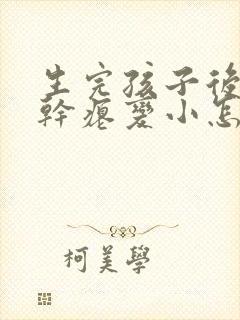 生完孩子後
幹瘪變小怎
柯美學